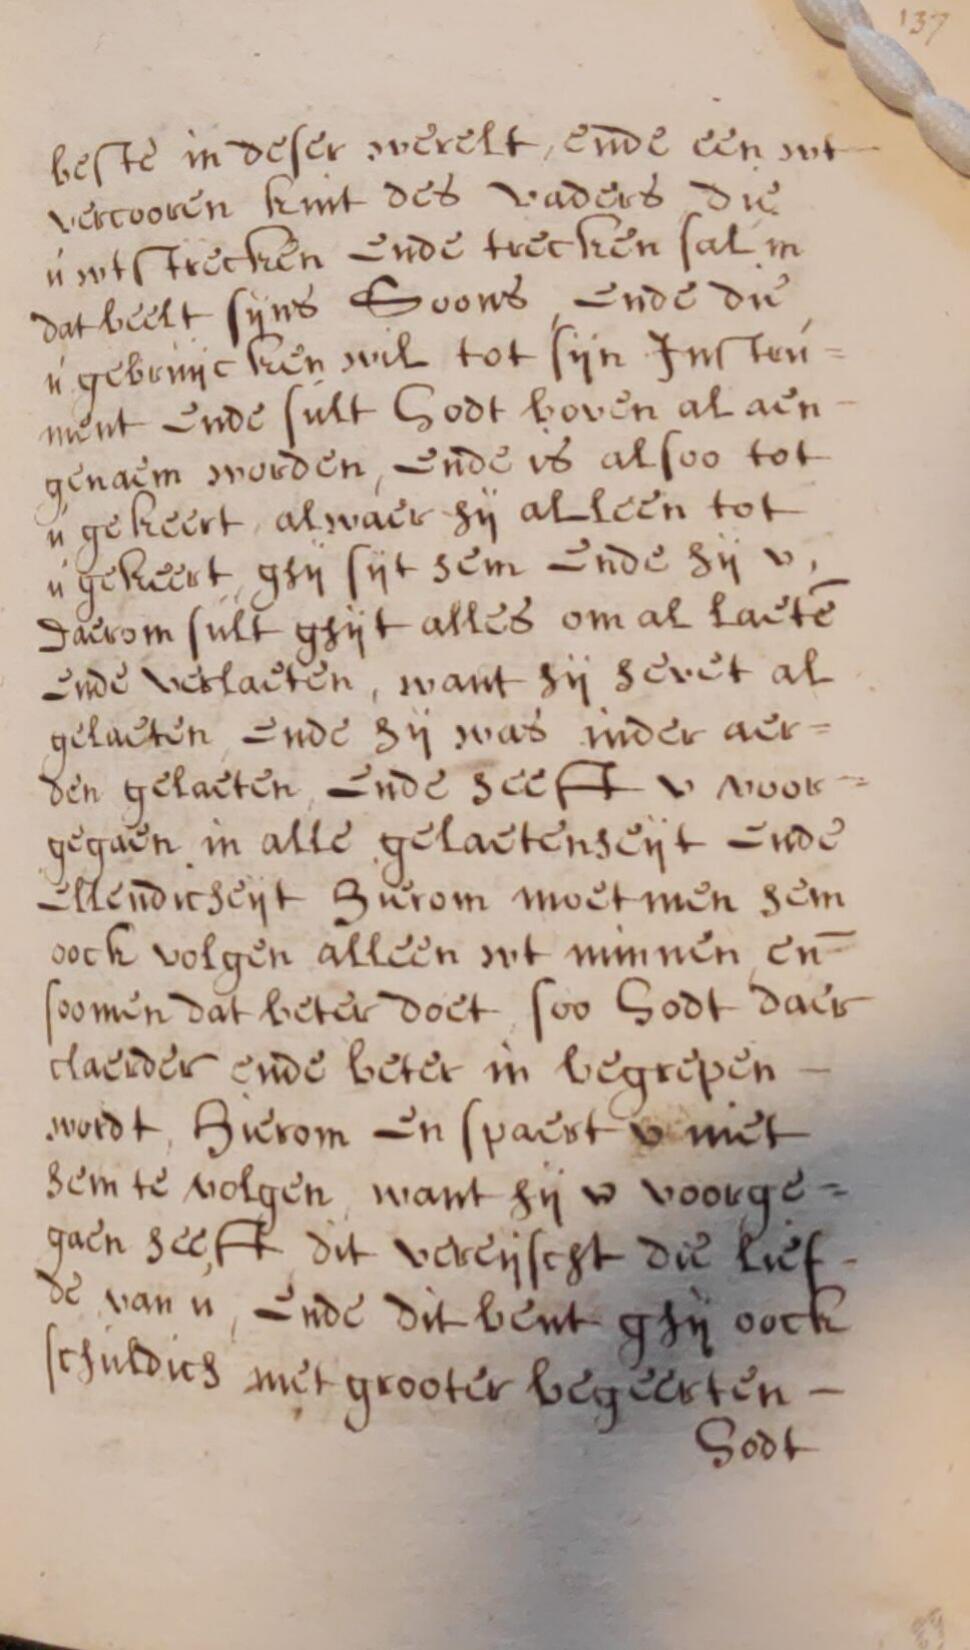 137
beste in deser werelt, ende een wt
vercooren kint des vaders, die
ú wtstrecken ende trecken sal in
dat beelt sijns Soons, ende die
ú gebrúijcken wil tot sijn Instrú=
ment ende súlt Godt boven al aen-
genaem worden, ende is alsoo tot
ú gekeert, alwaer hij alleen tot
ú gekeert, ghij sijt hem ende hij v,
Daerom súlt ghijt alles om al laetē
ende verlaeten, want hij hevet al
gelaeten, ende hij was inder aer=
den gelaeten, ende heefft v voor=
gegaen in alle gelaetenheijt ende
ellendicheijt Hierom moetmen hem
oock volgen alleen wt minnen, en̄
soomen dat beter doet, soo Godt daer
claerder ende beter in begrepen -
wordt, Hierom en spaert v niet
hem te volgen, want hij v voorge=
gaen heefft, dit vereijscht die lief-
de van ú, ende dit bent ghij oock
schúldich met grooter begeerten -
Godt